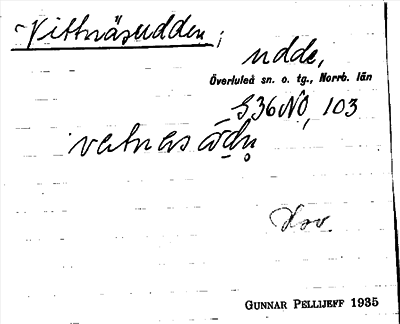 Vittnäsudden;
udde,
Överluleå sn. o. tg., Norrb. län
S36NO, 103
GUNNAR PELLIJEFF 1935